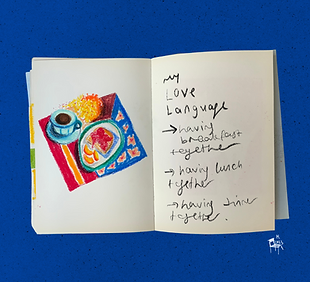 my
Love
Language
→ having
breakfast
together
→ having lunch
together
→ having dinner
together.